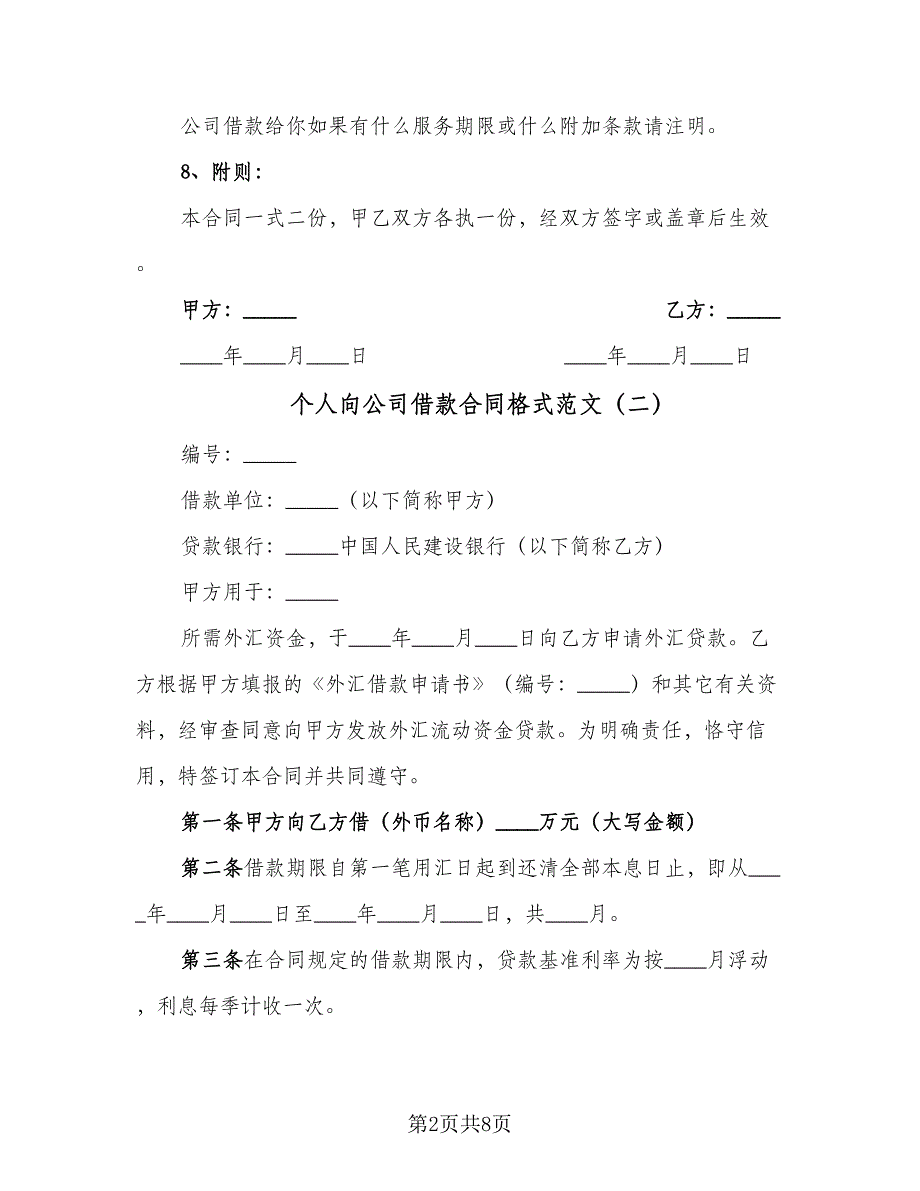 公司借款给你如果有什么服务期限或什么附加条款请注明。
8、附则：
本合同一式二份，甲乙双方各执一份，经双方签字或盖章后生效
。
甲方：_____ 乙方：_____
____年____月____日 ____年____月____日
个人向公司借款合同格式范文（二）
编号：_____
借款单位：_____（以下简称甲方）
贷款银行：_____中国人民建设银行（以下简称乙方）
甲方用于：_____
所需外汇资金，于____年____月____日向乙方申请外汇贷款。乙
方根据甲方填报的《外汇借款申请书》（编号：_____）和其它有关资
料，经审查同意向甲方发放外汇流动资金贷款。为明确责任，恪守信
用，特签订本合同并共同遵守。
第一条甲方向乙方借（外币名称）____万元（大写金额）
第二条借款期限自第一笔用汇日起到还清全部本息日止，即从___
_年____月____日至____年____月____日，共____月。
第三条在合同规定的借款期限内，贷款基准利率为按____月浮动
，利息每季计收一次。
第2页共8页